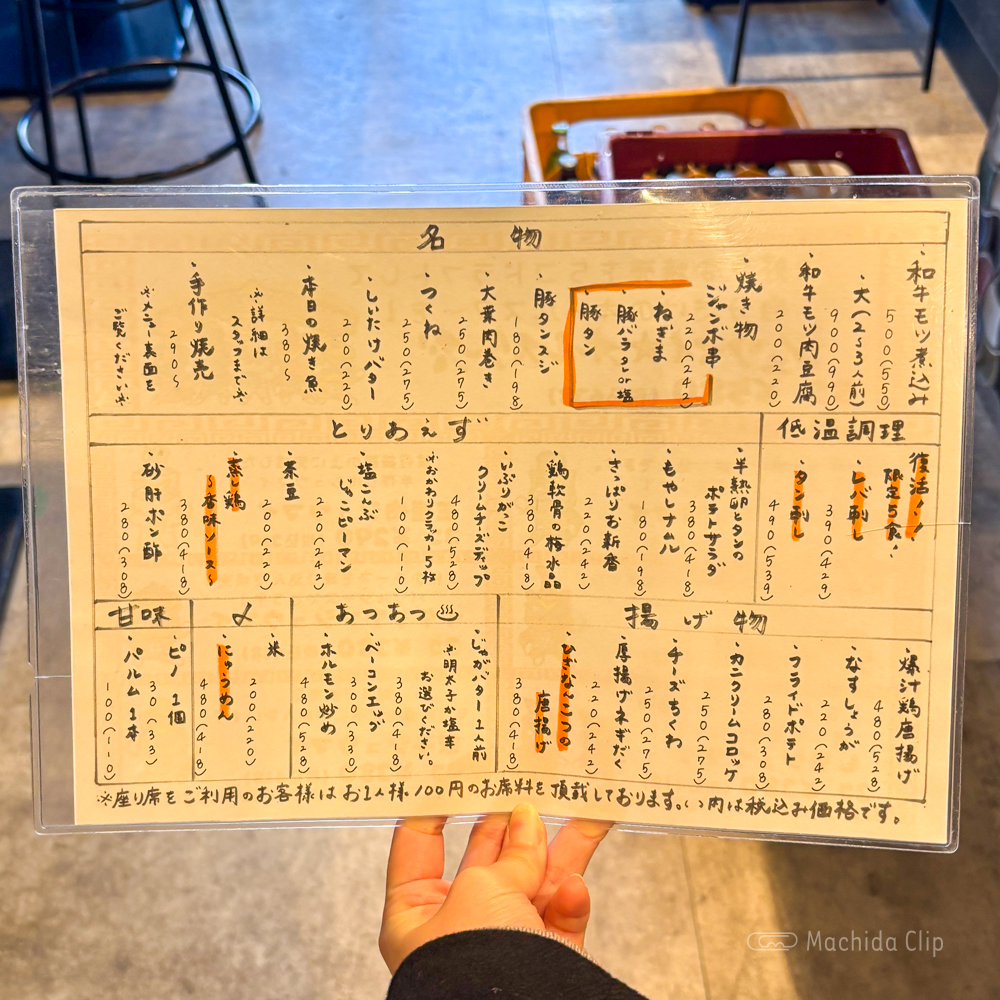 名物
・和牛モツ煮込み
500(550)
・大(2〜3人前)
900(990)
・和牛モツ肉豆腐
200(220)
・焼き物
ジャンボ串
220(242)
・ねぎま
・豚バラタレor塩
・豚タン
・豚タンスジ
180(198)
・大葉肉巻き
250(275)
・つくね
250(275)
・しいたけバター
200(220)
・本日の焼き魚
380〜
※詳細は
スタッフまで※
・手作り焼売
290〜
※メニュー裏面を
ご覧ください※
低温調理
復活!!
限定5食、、
・レバ刺し
390(429)
・タン刺し
490(539)
とりあえず
・半熟卵とタンの
ポテトサラダ
380(418)
・もやしナムル
180(198)
・さっぱりお新香
220(242)
・鶏軟骨の梅水晶
380(418)
・いぶりがっこ
クリームチーズディップ
480(528)
※おかわりクラッカー5枚
100(110)
・塩こんぶ
じゃこピーマン
220(242)
・茶豆
200(220)
・蒸し鶏
〜香味ソース〜
380(418)
・砂肝ポン酢
280(308)
揚げ物
・爆汁鶏唐揚げ
480(528)
・なすしょうが
220(242)
・フライドポテト
280(308)
・カニクリームコロッケ
250(275)
・チーズちくわ
250(275)
・厚揚げネギだく
220(242)
・ひざなんこつの
唐揚げ
380(418)
あつあつ
・じゃがバター1人前
※明太子か塩辛
お選びください。
380(418)
・ベーコンエッグ
300(330)
・ホルモン炒め
480(528)
〆
・米
200(220)
・にゅうめん
480(418)
甘味
・ピノ 1個
30(33)
・パルム 1本
100(110)
※座り席をご利用のお客様はお1人様100円のお席料を頂戴しております。()内は税込み価格です。
Machida Clip